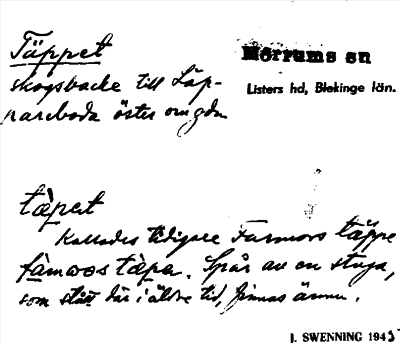 Täppet
skogsbacke till Läp-
pareboda öster om gdn
Mörrums sn
Listers hd, Blekinge län.
tàpət
Kallades tidigare Farmors täppe
fàmoos tàpa. Spår av en stuga,
som stått där i äldre tid, finnas ännu.
J. SWENNING 1945